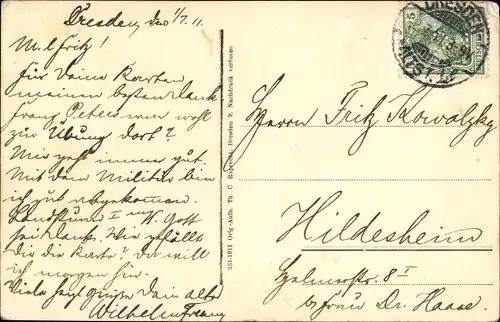 Dresden, den 1/7. 11.
M. l. Fritz!
Für Deine Karten
meinen besten Dank
Franz Peters war wohl
zur Übung dort?
Mir geht immer gut.
Mit dem Militär bin
ich gut abgekommen.
Landsturm I Gott
sei Dank. Wie gefällt
Dir die Karte? Da will
ich morgen hin.
Viele herzl. Grüße Dein alter
Wilhelm Franz
331-1911 Orig.-Aufn. Th. C Ruprecht, Dresden 9. Nachdruck verboten
DRESDEN
5
Herrn Fritz Kowalzky
Hildesheim
8 I
b/ Frau Dr. Haase.